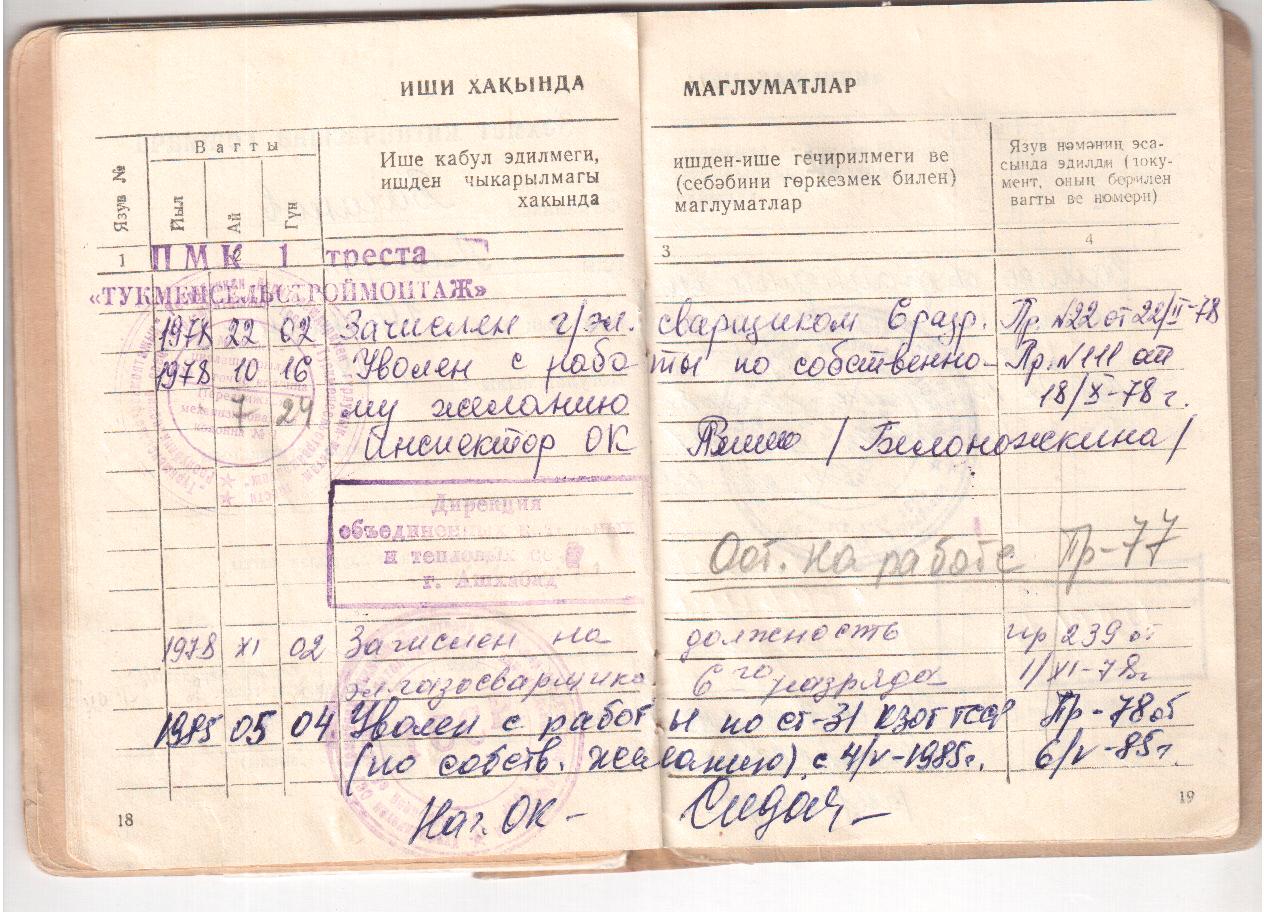 ИШИ ХАҚЫНДА МАГЛУМАТЛАР
Язув №
Вагты
Йыл
Ай
Гүн
Ише кабул эдилмеги,
ишден чыкарылмагы
хакында
ишден-ише гечирилмеги ве
(себәбини гөркезмек билен)
маглуматлар
Язув нәмәниң эса-
сында эдилди (доку-
мент, оның берилен
вагты ве номери)
1 2 3 4
ПМК 1 треста
«ТУКМЕНСЕЛЬСТРОЙМОНТАЖ»
1978 22 02 Зачислен г/эл. сварщиком 6 разр. Пр. №22 от 22/II-78
1978 10 16 Уволен с работы по собственно- Пр. №111 от
7 24 му желанию 18/X-78 г.
Инспектор ОК /Белоножкина/
Дирекция
объединенных котельных
и тепловых се
г. Ашхабад
Ост. на работе Пр-77
1978 XI 02 Зачислен на должность пр 239 от
эл газосварщика 6-го разряда 1/XI-78г
1985 05 04. Уволен с работы по ст-31 КЗОТ ТССР Пр-78 от
(по собств. желанию) с 4/V-1985г. 6/V-85г.
Нач. ОК –
18
19